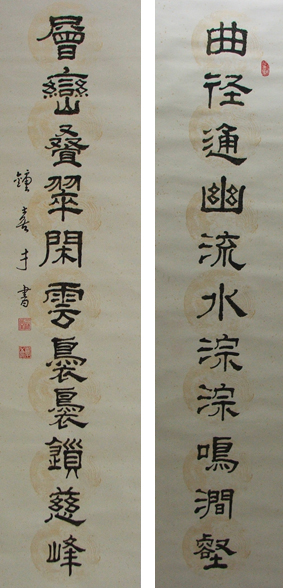 曲径通幽流水淙淙鳴澗壑
層巒叠翠閑雲裊裊鎖慈峰
鍾喜才書